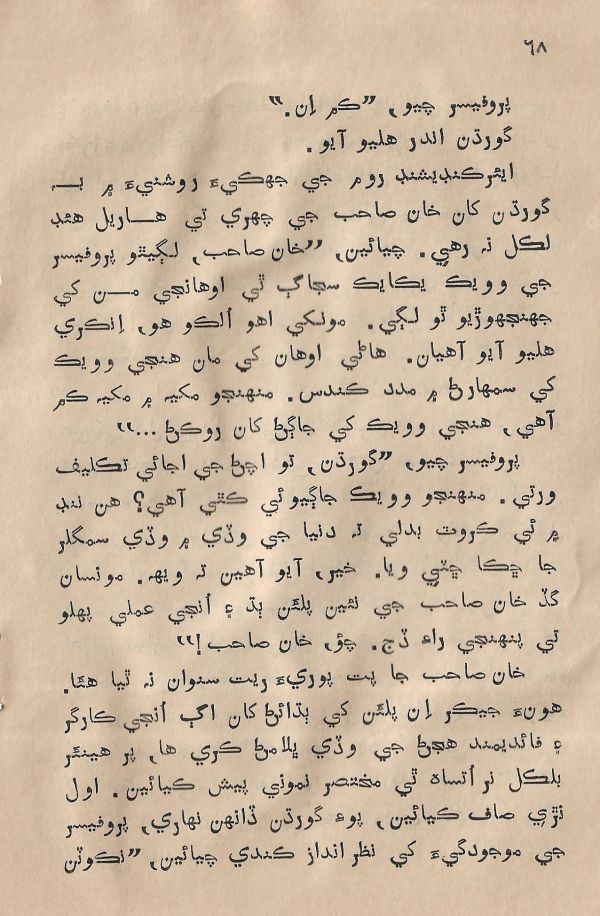 ٦٨
پروفيسر چيو، ”ڪم اِن.“
گورڌن اندر هليو آيو.
ايئرڪنڊيشنڊ روم جي جهڪيءَ روشنيءَ ۾ بـــہ
گورڌن کان خان صاحب جي چهري تي هـــاريل هئڊ
لڪل نہ رهي. چيائين، ”خان صاحب، لڳيٿو پروفيسر
جي وويڪ يڪايڪ سجاڳ ٿي اوهانجي مـــن کي
جهنجهوڙيو ٿو لڳي. مونکي اهو اُلڪو هو، اِنڪري
هليو آيو آهيان. هاڻي اوهان کي مان هنجي وويڪ
کي سمهارڻ ۾ مدد ڪندس. منهنجو مکيہ ۾ مکيہ ڪم
آهي، هنجي وويڪ کي جاڳڻ کان روڪڻ...“
پروفيسر چيو، ”گورڌن، تو اچڻ جي اجائي تڪليف
ورتي. منهنجو وويڪ جاڳيوئي ڪٿي آهي؟ هن ننڊ
۾ ئي ڪروٽ بدلي تہ دنيا جي وڏي ۾ وڏي سمگلر
جا ڇڪا ڇٽي ويا. خير، آيو آهين تہ ويهہ. مونسان
گڏ خان صاحب جي نئين پلئن ٻڌ ۽ اُنجي عملي پهلو
تي پنهنجي راءِ ڏج. چؤ، خان صاحب!“
خان صاحب جا پٽ پوريءَ ريت سنوان نہ ٿيا هئا.
هونءَ جيڪر اِن پلئن کي ٻڌائڻ کان اڳ اُنجي ڪارگر
۽ فائديمند هجڻ جي وڏي ٻلامڻ ڪري ها، پر هينئر
بلڪل نراُتساهہ ٿي مختصر نموني پيش ڪيائين. اول
نڙي صاف ڪيائين، پوءِ گورڌن ڏانهن نهاري، پروفيسر
جي موجودگيءَ کي نظرانداز ڪندي چيائين، ”نڪوٽن